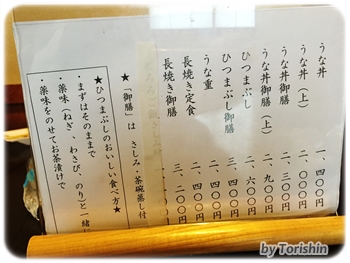 うな丼 一、四〇〇円
うな丼（上） 二、〇〇〇円
うな丼御膳 二、三〇〇円
うな丼御膳（上） 二、九〇〇円
ひつまぶし 二、六〇〇円
ひつまぶし御膳 〇〇円
うな重 二、四〇〇円
長焼き定食 二、四〇〇円
長焼き御膳 三、二〇〇円
★「御膳」は さしみ・茶碗蒸し付
★ひつまぶしのおいしい食べ方★
・まずはそのままで
・薬味（ねぎ、わさび、のり）と一緒
・薬味をのせてお茶漬けで
by Torishin